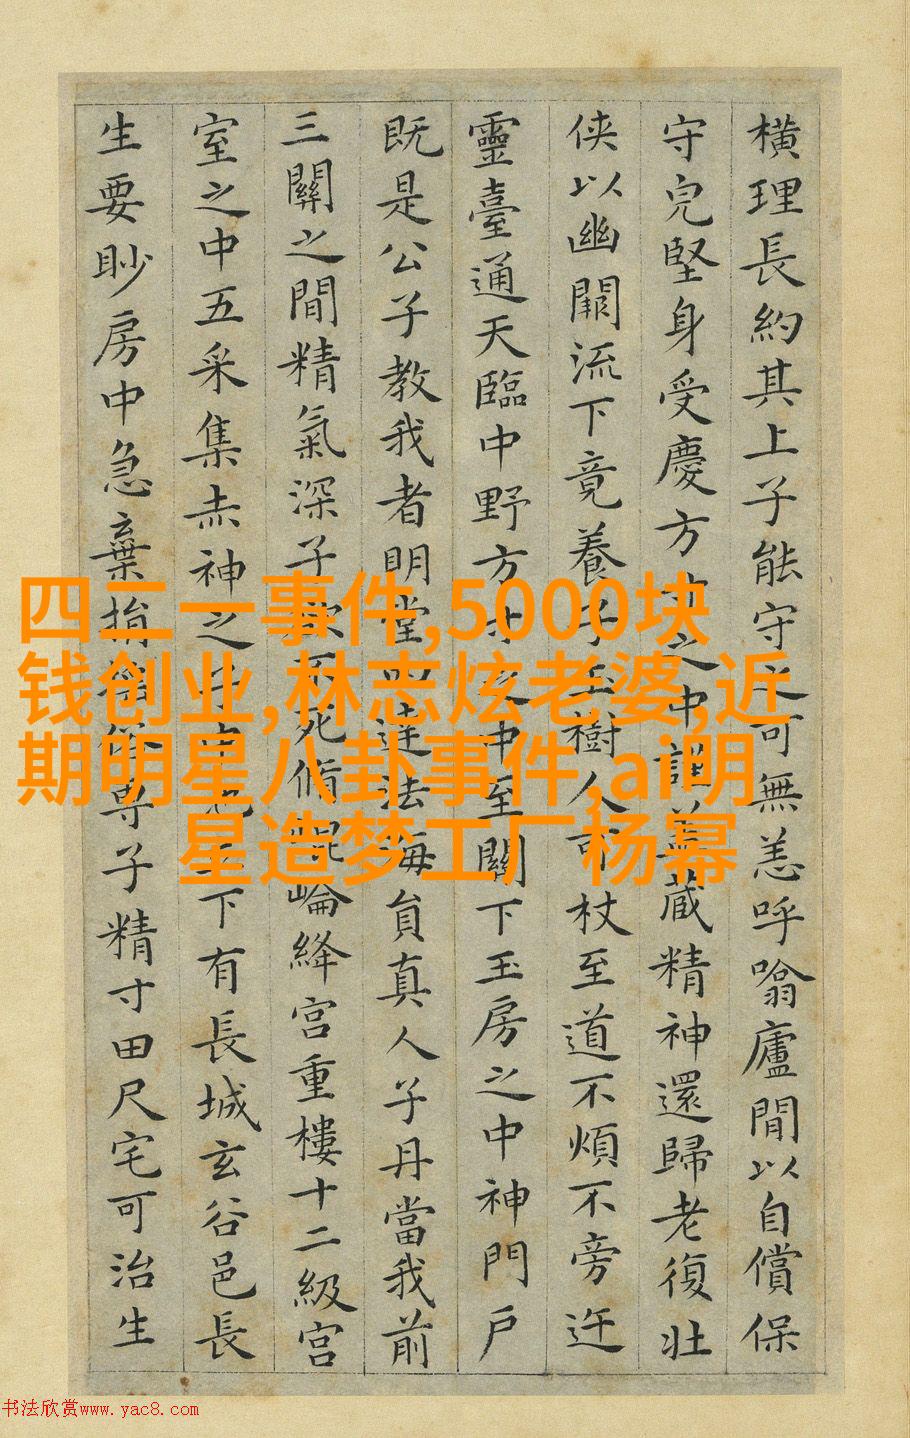 橫理長約其上子能守之可無恙呼噏廬間以自償保
守皃堅身受慶方寸之中謹蓋藏精神還歸老復壯
侠以幽闕流下竟養子玉樹人可杖至道不煩不旁迕
靈臺通天臨中野方寸之中至關下玉房之中神門戶
既是公子教我者明堂四達法海員真人子丹當我前
三關之間精氣深子欲不死脩崐崘絳宮重樓十二級宮
室之中五采集赤神之子中池立下有長城玄谷邑長
生要眇房中急棄捐俗專子精寸田尺宅可治生
四二一事件,5000块
钱创业,林志炫老婆,近
期明星八卦事件,ai明
星造梦工厂杨幂
书法欣赏www.yac8.com